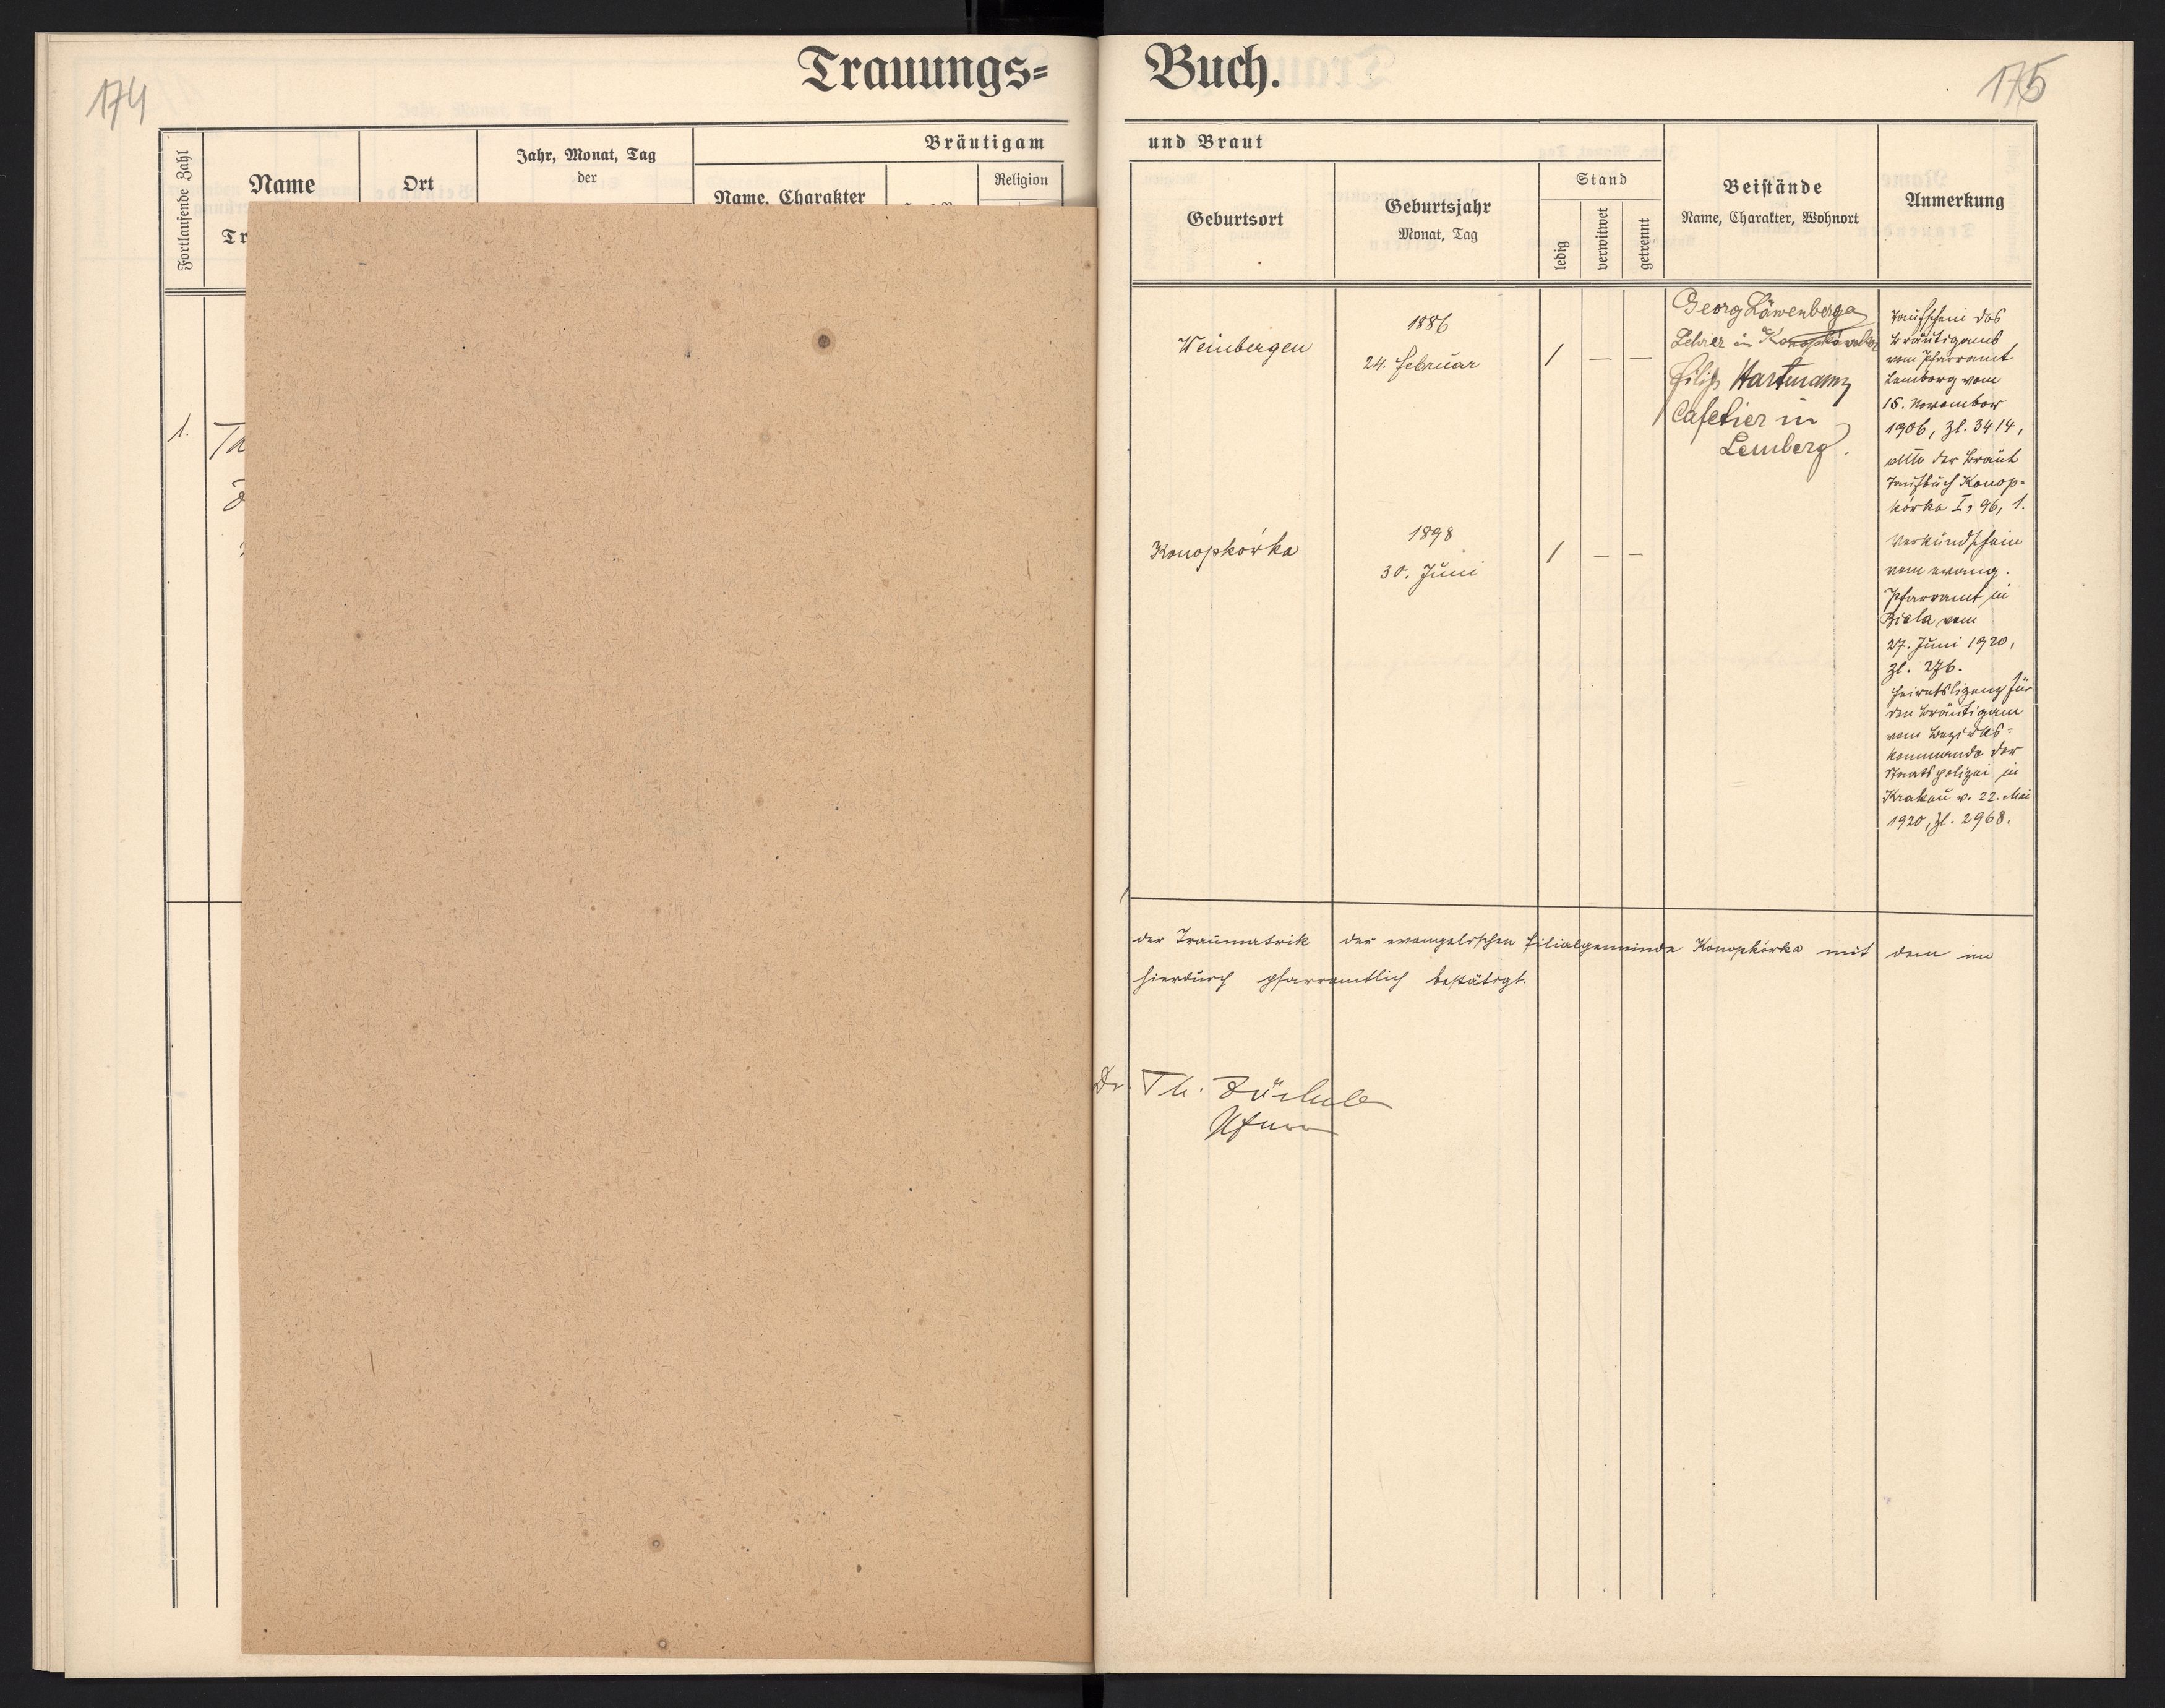 174
Trauungs=
Fortlaufende Zahl
Name
Tr
Ort
Jahr, Monat, Tag
der
Bräutigam
Name, Charakter
Religion
1.
Th
Buch.
175
und Braut
Geburtsort
Geburtsjahr
Monat, Tag
Stand
ledig
verwitwet
getrennt
Beistände
Name, Charakter, Wohnort
Anmerkung
Weinbergen
1886
24. Februar
/ — —
Georg Löwenberger
Lehrer in Konopkówka
Filip Hartmann
Cafetier in
Lemberg.
Taufschein des
Bräutigams
vom Pfarramt
Lemberg vom
15. November
1906, Zl. 3414,
der Braut
Taufbuch Konop=
kówka I, 96, 1.
Verkündschein
vom evang.
Pfarramt in
Biala vom
27. Juni 1920,
Zl. 276.
Heiratslizenz für
den Bräutigam
vom Bezirks=
kommando der
Staatspolizei in
Krakau v. 22. Mai
1920, Zl. 2968.
Konopkówka
1898
30. Juni
/ — —
der Traumatrik der evangelischen Filialgemeinde Konopkówka mit dem im
hierdurch pfarramtlich bestätigt.
Dr. Th. Zöckler
Pfarrer